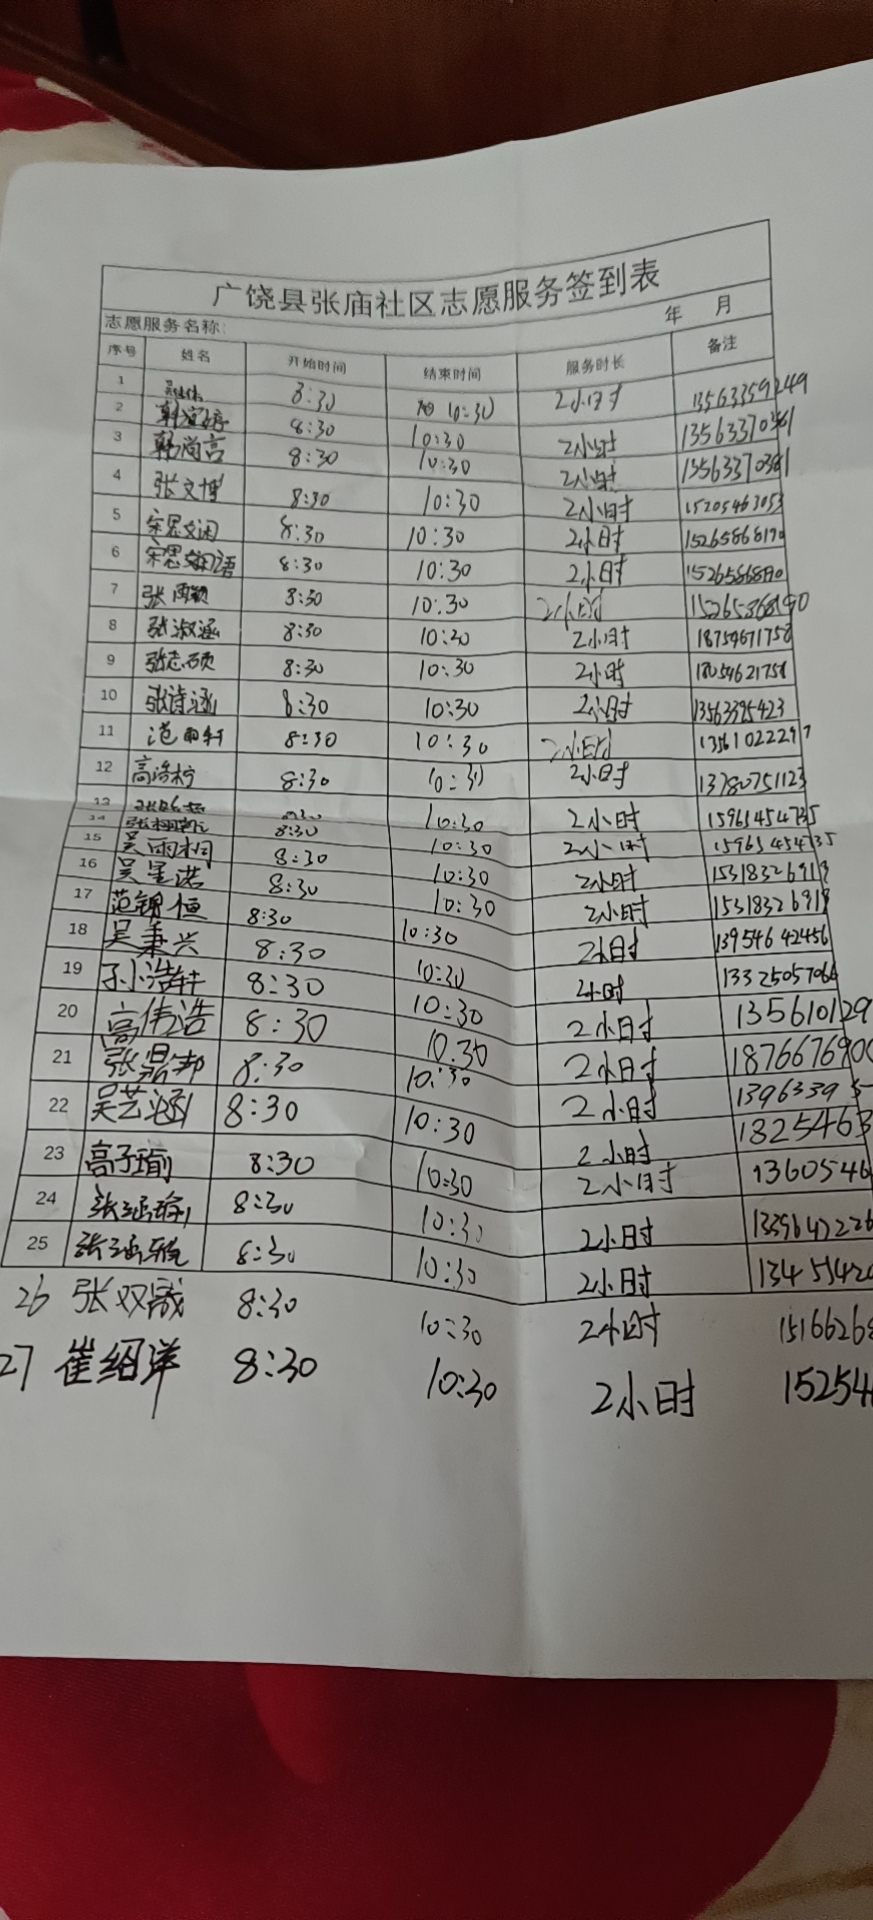 广饶县张庙社区志愿服务签到表
志愿服务名称: 年 月
序号 姓名 开始时间 结束时间 服务时长 备注
1 8:30 10:30 2小时 13563359249
2 8:30 10:30 2小时
3 韩尚言 8:30 10:30 2小时
4 张文博 8:30 10:30 2小时 15205463053
5 宋思文闲 8:30 10:30 2小时 15265868190
6 8:30 10:30 2小时
7 张雨颖 8:30 10:30 2小时
8 张淑涵 8:30 10:20 2小时 18754671758
9 张志硕 8:30 10:30 2小时
10 张诗涵 8:30 10:30 2小时 13563395423
11 范雨轩 8:30 10:30 2小时
12 高浩柠 8:30 10:30 2小时 13780751123
13 10:30 2小时 15961454735
14 8:30 10:30 2小时 15965454735
15 吴雨桐 8:30 10:30 2小时
16 吴星诺 8:30 10:30 2小时
17 范锦恒 8:30 10:30 2小时 13954642456
18 吴秉兴 8:30 10:30 2小时 13325057066
19 孙浩轩 8:30 10:30 2小时 135610129
20 高伟浩 8:30 10:30 2小时 1876676900
21 张鼎邦 8:30 10:30 2小时 1396339
22 吴芸涵 8:30 10:30 2小时 1825463
23 高子瑜 8:30 10:30 2小时 1360546
24 张涵瑜 8:30 10:30 2小时
25 8:30 10:30 2小时
26 张双 8:30 10:30 2小时 1516626
27 崔绍洋 8:30 10:30 2小时 15254